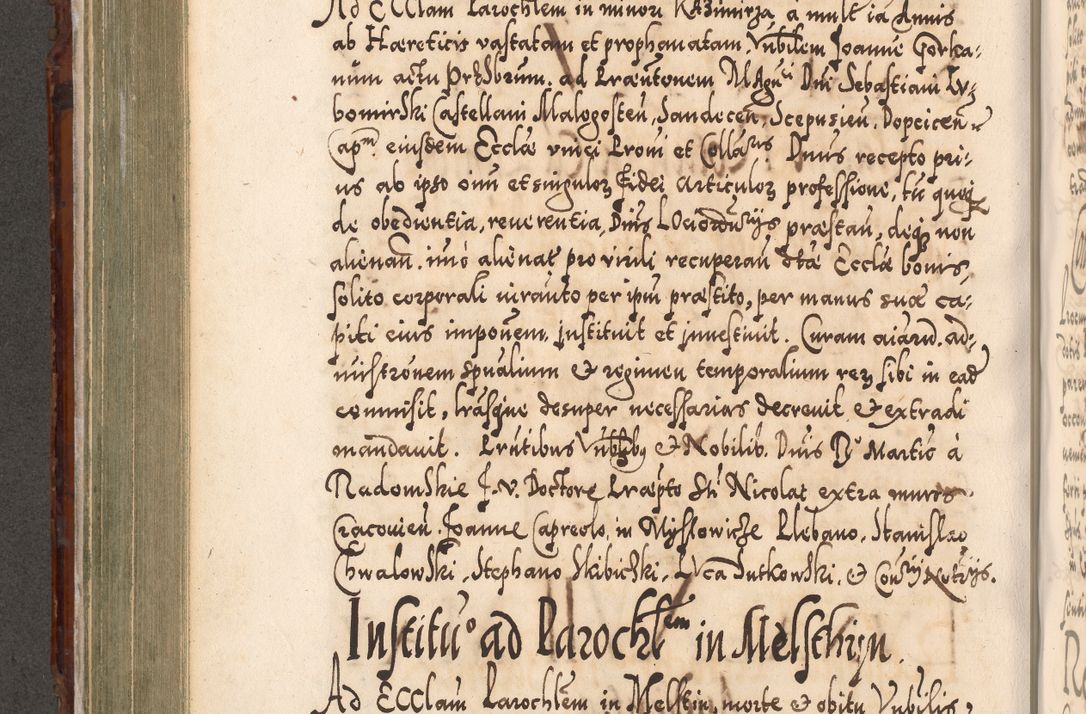 Ad ECClam Parochlem in minori KaZimirza à mult ia Annis
ab Hæreticis vastatam et prophanatam, Vnblem Joanne Gorka-
num actu Prsbrum. ad Præntonem Magci Dni Sebastiani Lu-
bomirski Castellani Malogosteñ, Sandeceñ, Scepusieñ, Dopciceñ
Capm. eiusdem Ecclæ vnici Proui et Collaris Dnus recepto pri-
us ab ipso oim et singulor Fidei Articulor professione, tũ quoq
de obedientia, reuerentia, Dnis præstañ, deq non
alienañ. imò alienat pro virili recuperañ dtæ Ecclæ bonis,
solito corporali iuranto per ipm præstito, per manus suæ ca-
piti eius imponem, instituit et inuestiuit. Curam aiarud. ad-
nistronem spualium & regimen temporalium rerz sibi in ead
commisit, lrasque desuper necessarias decreuit & extradi
mandauit. Prntibus Vnblibs & Nobilib. Dnis Martio à
Radomskie J. V. Doctore Præpto Sti Nicolai extra muros
Cracouieñ. Joanne Capreolo, in Mysłowicze Plebano, Stanislao
Chwalowski, Stephano Skibicski, Luca Dutkowski, & Notrijs.
Institũo ad Parochlem in Melsthijn.
Ad ECClam Parochlem in Melstin, morte & obitu Vnbilis